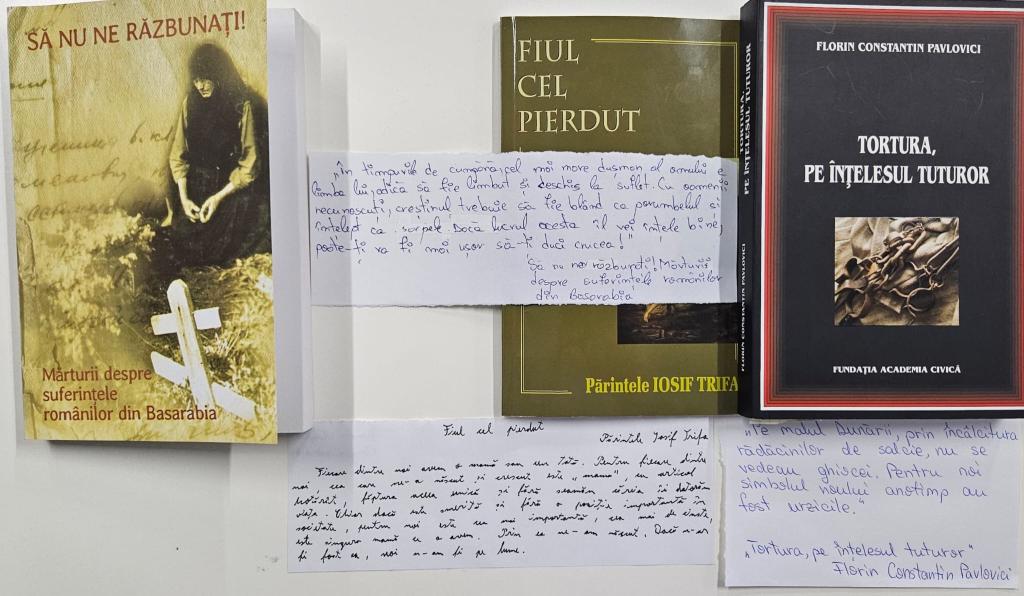 SĂ NU NE RĂZBUNAȚI!
Mărturii despre
suferințele
românilor din Basarabia
FIUL
CEL
PIERDUT
Părintele IOSIF TRIFA
FLORIN CONSTANTIN PAVLOVICI
TORTURA,
PE ÎNȚELESUL TUTUROR
FUNDAȚIA ACADEMIA CIVICĂ
TORTURA,
PE ÎNȚELESUL TUTUROR
FLORIN CONSTANTIN PAVLOVICI
„În timpurile de cumpănă, cel mai mare dușman al omului e
limba lui, adică să fie limbut și deschis la suflet. Cu oamenii
necunoscuți, creștinul trebuie să fie blând ca porumbelul și
înțelept ca șarpele. Dacă lucrul acesta îl vei înțele bine,
poate-ți va fi mai ușor să-ți duci crucea!"
"Să nu ne răzbunați! Mărturii
despre suferințele românilor
din Basarabia
Fiul cel pierdut
Părintele Iosif Trifa
Fiecare dintre noi avem o mamă sau un tată. Pentru fiecare dintre
noi, cea care ne-a născut și crescut este „mama", cu articol
hotărât, făptura aceea unică și fără seamăn căreia îi datorăm
viața. Chiar dacă este smerită și fără o poziție importantă în
societate, pentru noi este cea mai importantă, cea mai de cinste,
este singura mamă ce o avem. Prin ea ne-am născut. Dacă n-ar
fi fost ea, noi n-am fi pe lume.
„Pe malul Dunării, prin încâlcitura
rădăcinilor de salcie, nu se
vedeau ghiocei. Pentru noi
simbolul noului anotimp au
fost urzicile."
„Tortura, pe înțelesul tuturor"
Florin Constantin Pavlovici